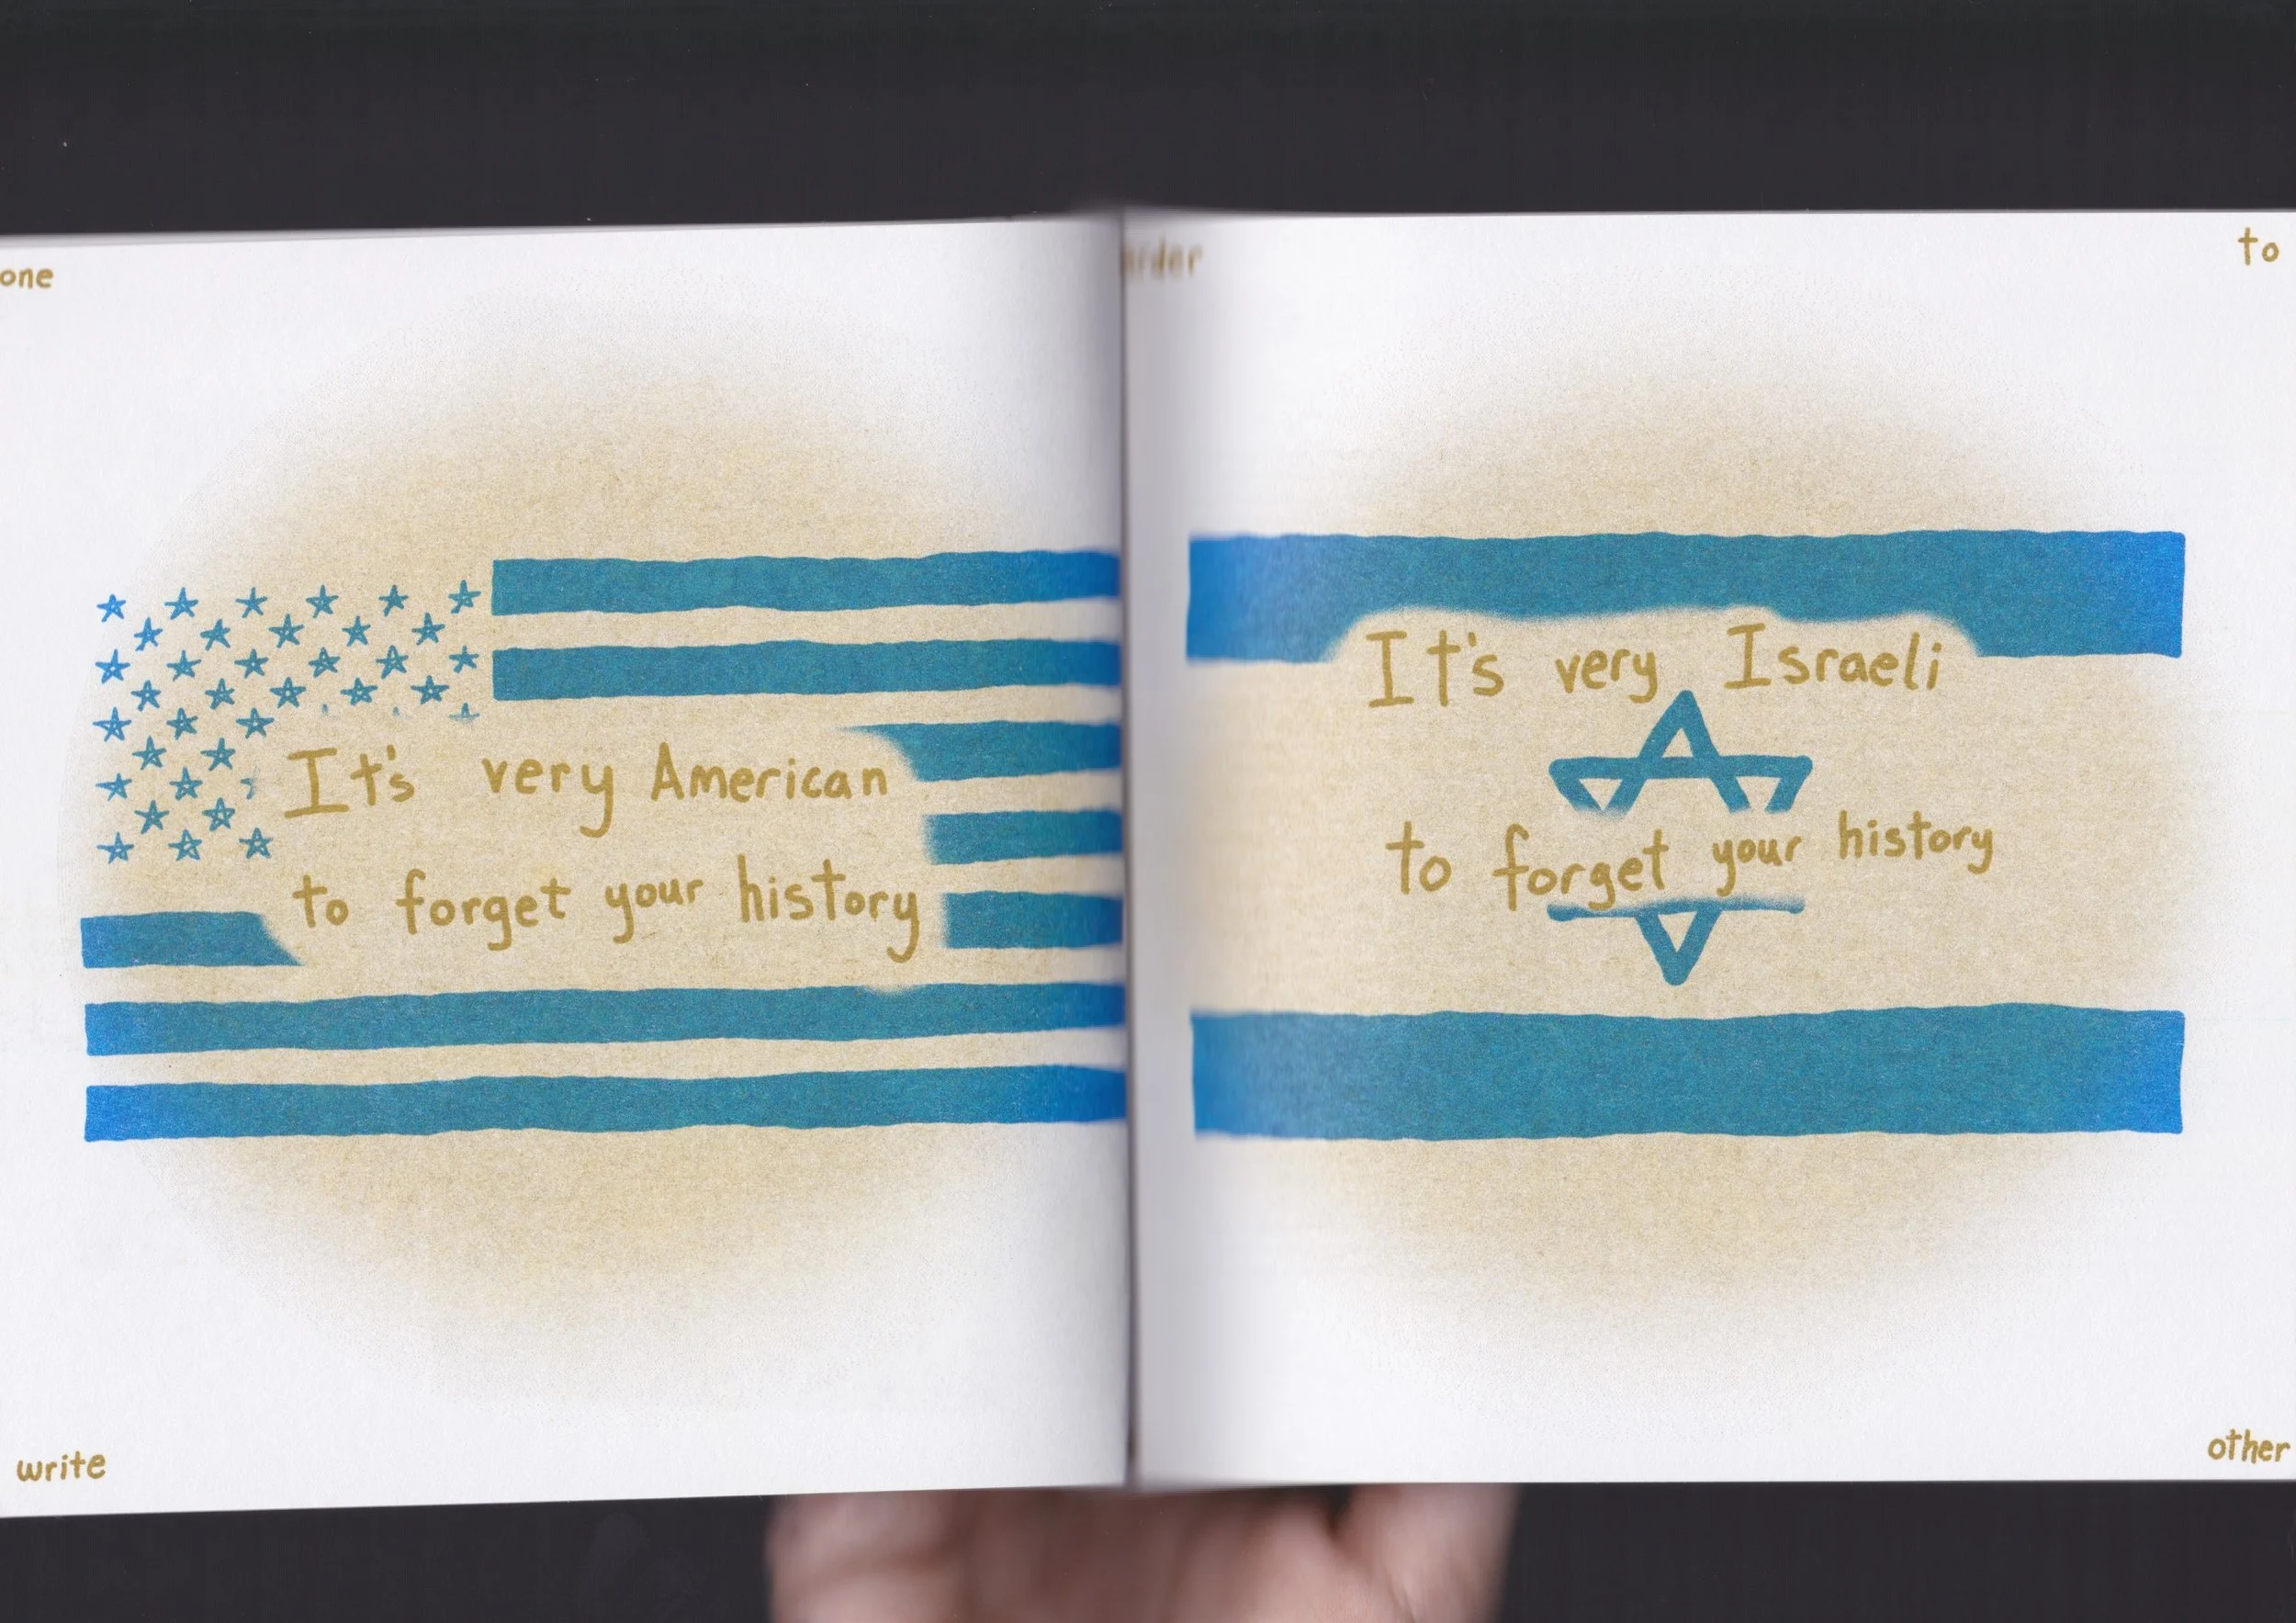 one
It's very American
to forget your history
write
to
It's very Israeli
to forget your history
other